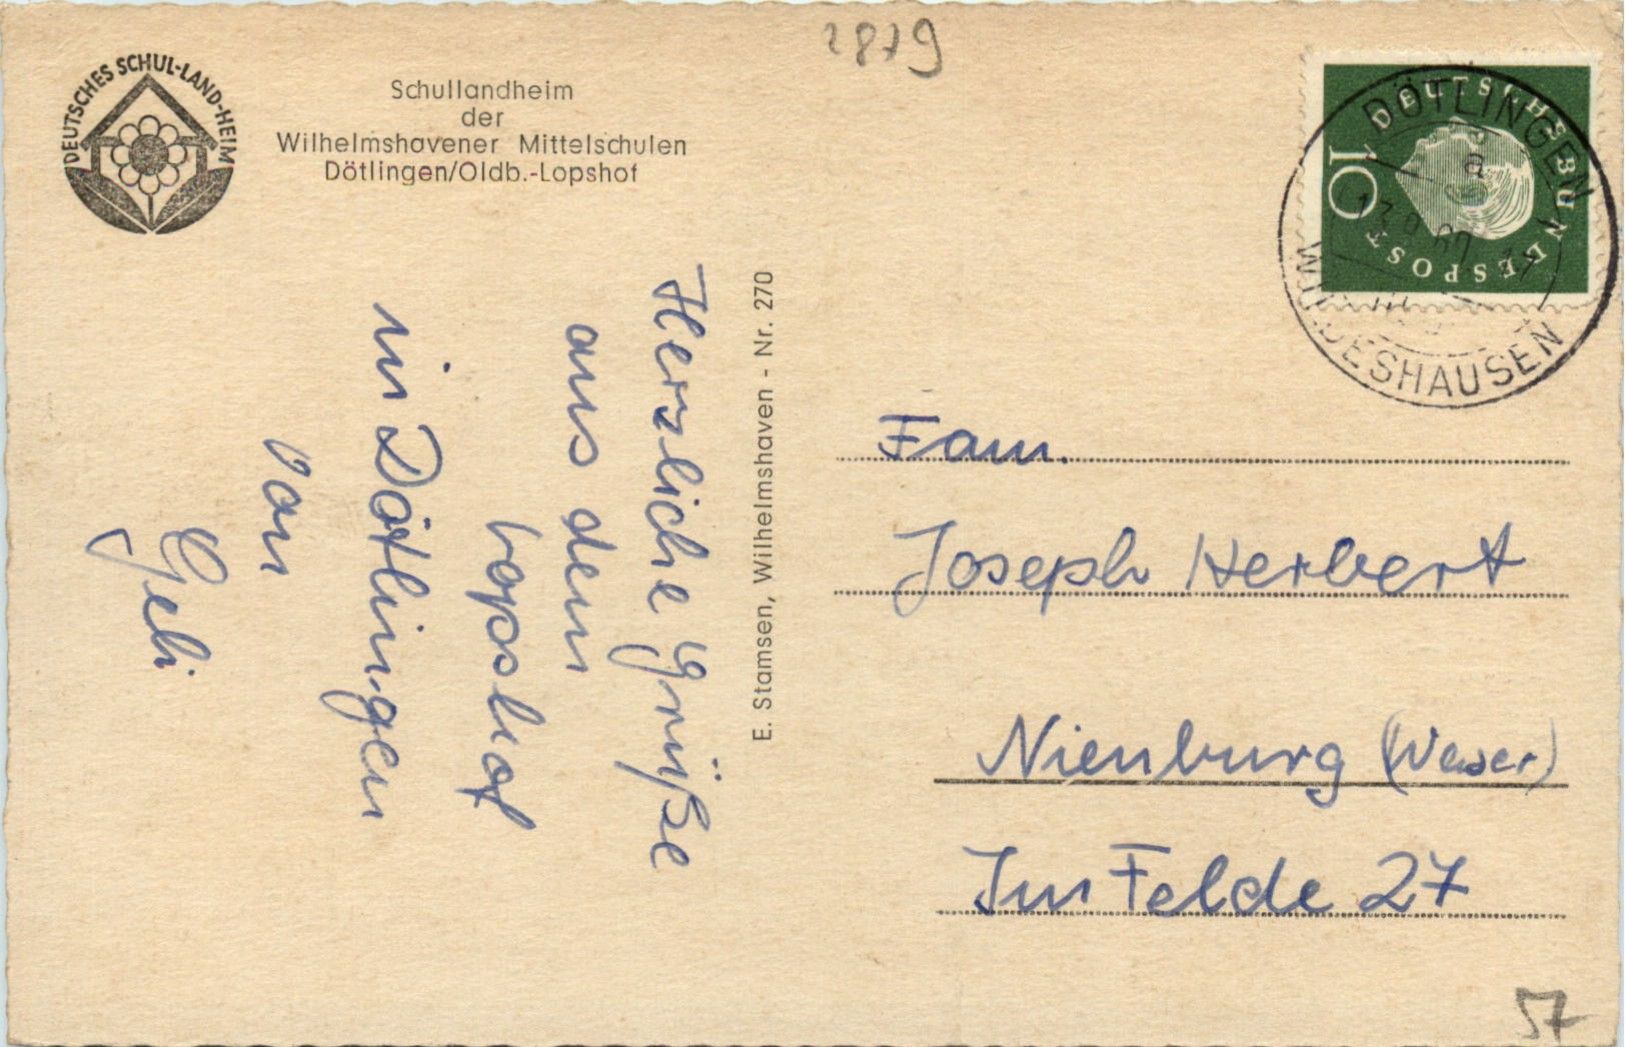 2879
DEUTSCHES SCHUL-LAND-HEIM
Schullandheim
der
Wilhelmshavener Mittelschulen
Dötlingen/Oldb.-Lopshof
DEUTSCHE BUNDESPOST
10
DÖTLINGEN
a
WILDESHAUSEN
Herzliche Grüße
aus dem
Lopshof
in Dötlingen
von
Geli
E. Stamsen, Wilhelmshaven - Nr. 270
Fam.
Joseph Herbert
Nienburg (Weser)
Im Felde 27
57